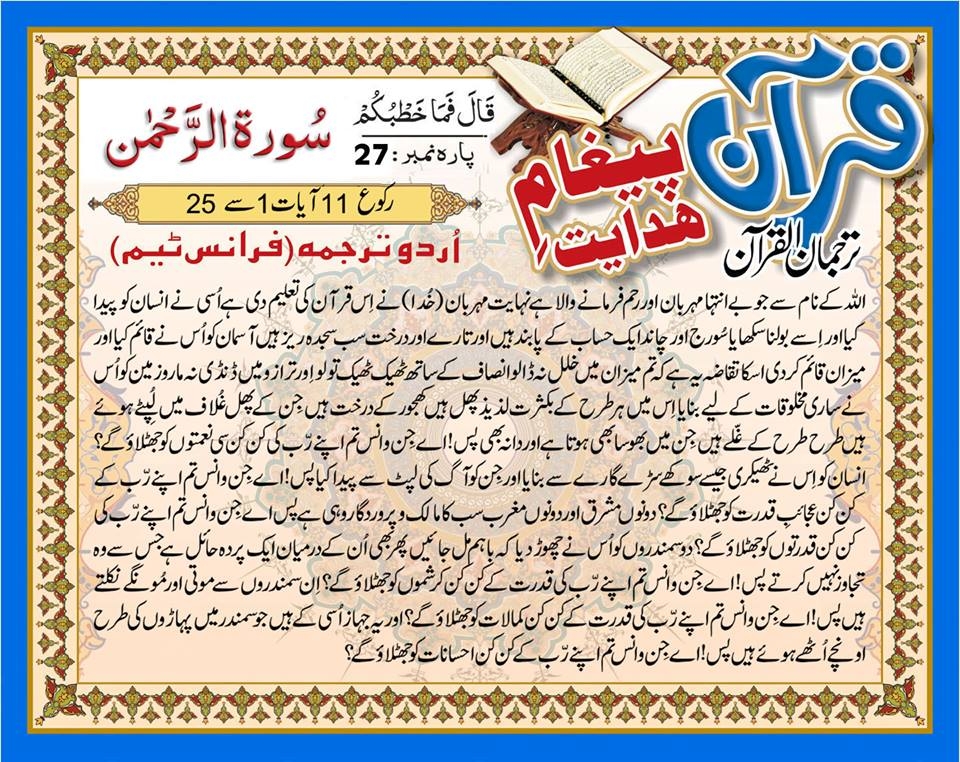 قرآن
پیغامِ
ھدایت
ترجمان القرآن
قَالَ فَمَا خَطْبُكُمْ
پارہ نمبر: 27
سُورۃ الرَّحْمٰن
رکوع 11 آیات 1 سے 25
اُردو ترجمہ (فرانس ٹیم)
اللہ کے نام سے جو بے انتہا مہربان اور رحم فرمانے والا ہے نہایت مہربان (خُدا) نے اِس قرآن کی تعلیم دی ہے اُسی نے انسان کو پیدا
کیا اور اِسے بولنا سکھایا سُورج اور چاند ایک حساب کے پابند ہیں اور تارے اور درخت سب سجدہ ریز ہیں آسمان کو اُس نے قائم کیا اور
میزان قائم کر دی اسکا تقاضہ یہ ہے کہ تم میزان میں خلل نہ ڈالو انصاف کے ساتھ ٹھیک ٹھیک تولو اور ترازو میں ڈنڈی نہ مارو زمین کو اُس
نے ساری مخلوقات کے لیے بنایا اِس میں ہر طرح کے بکثرت لذیذ پھل ہیں کھجور کے درخت ہیں جِن کے پھل غُلاف میں لپٹے ہوئے
ہیں طرح طرح کے غلّے ہیں جِن میں بھوسا بھی ہوتا ہے اور دانہ بھی پس! اے جِن وانس تم اپنے رّب کی کن کن سی نعمتوں کو جھٹلاؤ گے؟
انسان کو اِس نے ٹھیکری جیسے سوکھے سڑے گارے سے بنایا اور جِن کو آگ کی لپٹ سے پیدا کیا پس! اے جِن وانس تم اپنے رّب کے
کن کن عجائبِ قدرت کو جھٹلاؤ گے؟ دونوں مشرق اور دونوں مغرب سب کا مالک و پروردگار وہی ہے پس اے جِن وانس تم اپنے رّب کی
کن کن قدرتوں کو جھٹلاؤ گے؟ دو سمندروں کو اُس نے چھوڑ دیا کہ باہم مل جائیں پھر بھی اُن کے درمیان ایک پردہ حائل ہے جس سے وہ
تجاوز نہیں کرتے پس! اے جِن وانس تم اپنے رّب کی قدرت کے کن کن کرشموں کو جھٹلاؤ گے؟ اِن سمندروں سے موتی اور مُونگے نکلتے
ہیں پس! اے جِن وانس تم اپنے رّب کی قدرت کے کن کن کمالات کو جھٹلاؤ گے؟ اور یہ جہاز اُسی کے ہیں جو سمندر میں پہاڑوں کی طرح
اونچے اُٹھے ہوئے ہیں پس! اے جِن وانس تم اپنے رّب کے کن کن احسانات کو جھٹلاؤ گے؟